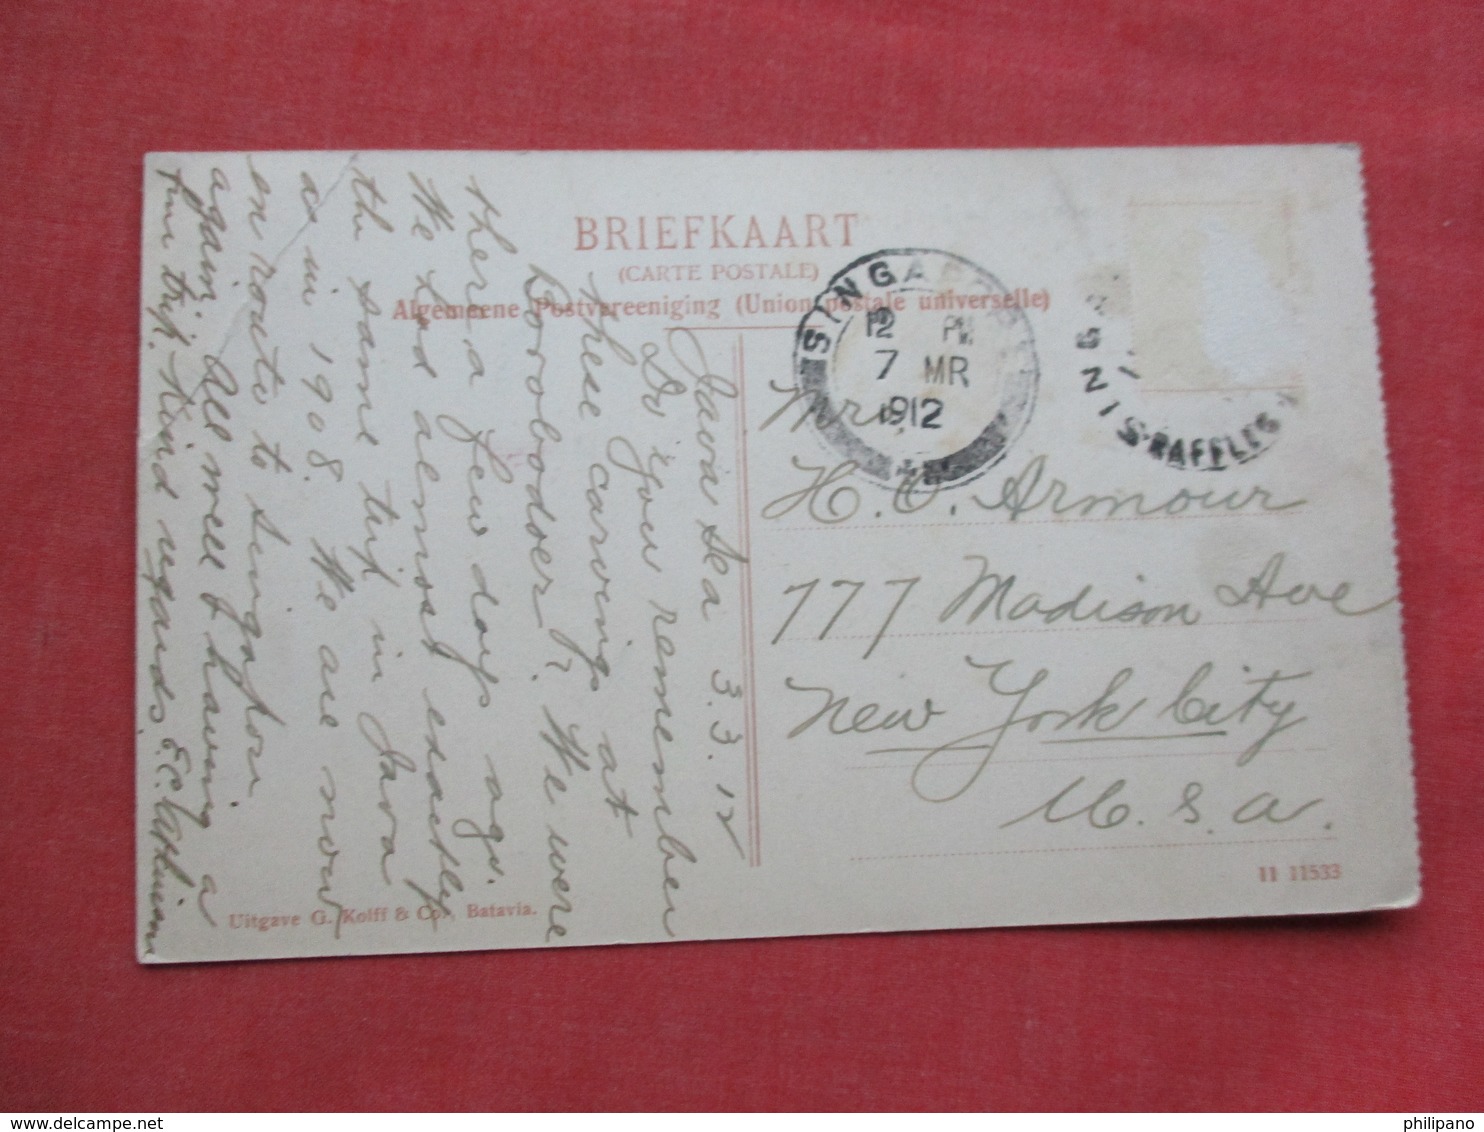 BRIEFKAART
(CARTE POSTALE)
Algemeene Postvereeniging (Union postale universelle)
Java Sea 3.3.12
Do you remember
these carvings at
Boroboder? We were
there a few days ago.
We had almost exactly
the same trip in Java
as in 1908. We are now
en route to Singapore
again. All well & having a
fine trip. Kind regards, E.C.
SINGAPORE
12 PM
7 MR
1912
S·RAFFLES
Mr.
H. O. Armour
777 Madison Ave
New York City
U. S. A.
Uitgave G. Kolff & Co., Batavia.
II 11533
philipano
delcampe.net